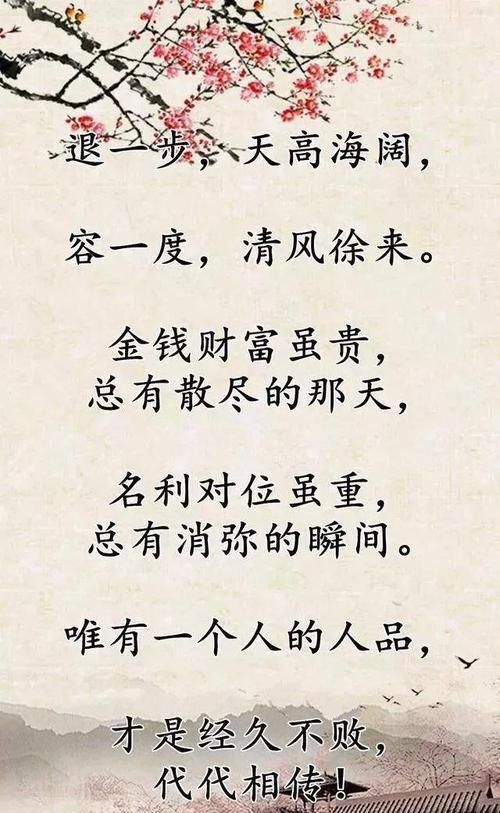 退一步，天高海阔，
容一度，清风徐来。
金钱财富虽贵，
总有散尽的那天，
名利对位虽重，
总有消弥的瞬间。
唯有一个人的人品，
才是经久不败，
代代相传！